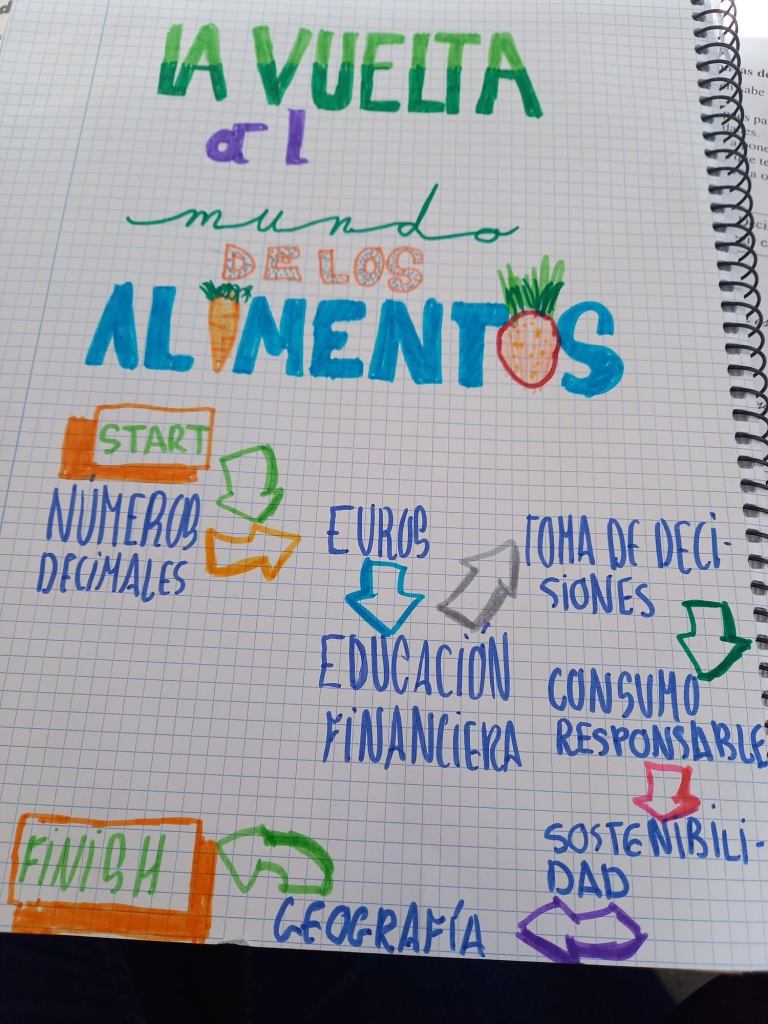 LA VUELTA
al
mundo
DE LOS
ALIMENTOS
START
NÚMEROS
DECIMALES
EUROS
EDUCACIÓN
FINANCIERA
TOMA DE DECI-
SIONES
CONSUMO
RESPONSABLE
SOSTENIBILI-
DAD
GEOGRAFÍA
FINISH